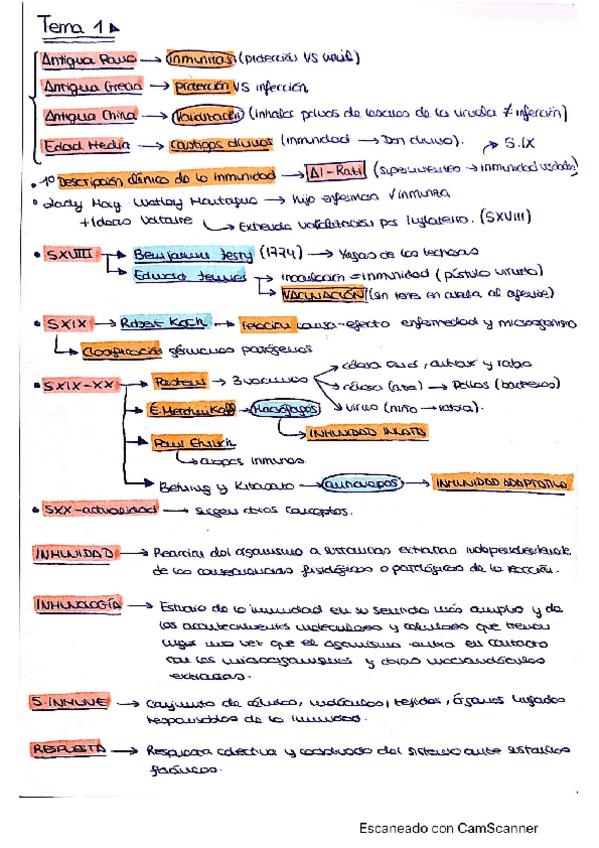 Tema 1
Antigua Roma → inmunitas (protección VS
Antigua Grecia → protección VS infección
Antigua China → Variolización (inhalar polvos de de la viruela ≠ infección)
Edad Media → castigos divinos (inmunidad → Don divino). → S.IX
• 1º Descripción clínica de la inmunidad → Al-Razi (supervivientes → inmunidad
• Lady Mary Wortley Montague → hijo enfermos / inmuniza
+ Ideas Voltaire → Extiende variolización por Inglaterra. (SXVIII)
• SXVIII → Benjamin Jesty (1774) → Vacas de las lecheras
→ Edward Jenner → inoculación = inmunidad (pústula viruela)
→ VACUNACIÓN (sin tener en cuenta al agente)
• SXIX → Robert Koch → relación causa-efecto enfermedad y microorganismo
→ Clasificación gérmenes patógenos
• SXIX-XX → Pasteur → 3 vacunas → cólera aves, antrax y rabia
→ cólera → Pollos (bacterias)
→ virus (niño → rabia).
→ E. Metchnikoff → Macrófagos
→ INMUNIDAD INNATA
→ Paul Ehrlich
→ inmunes
→ Behring y Kitasato → → INMUNIDAD ADAPTATIVA
• SXX-actualidad → surgen otros conceptos.
INMUNIDAD → Reacción del organismo a sustancias extrañas independientemente
de las consecuencias fisiológicas o patológicas de la reacción.
INMUNOLOGÍA → Estudio de la inmunidad en su sentido más amplio y de
los acontecimientos moleculares y celulares que tienen
lugar una vez que el organismo entra en contacto
con los microorganismos y otras macromoléculas
extrañas.
S. INMUNE → Conjunto de células, moléculas, tejidos, órganos
responsables de la inmunidad.
RESPUESTA → Respuesta colectiva y coordinada del sistema ante sustancias
Escaneado con CamScanner